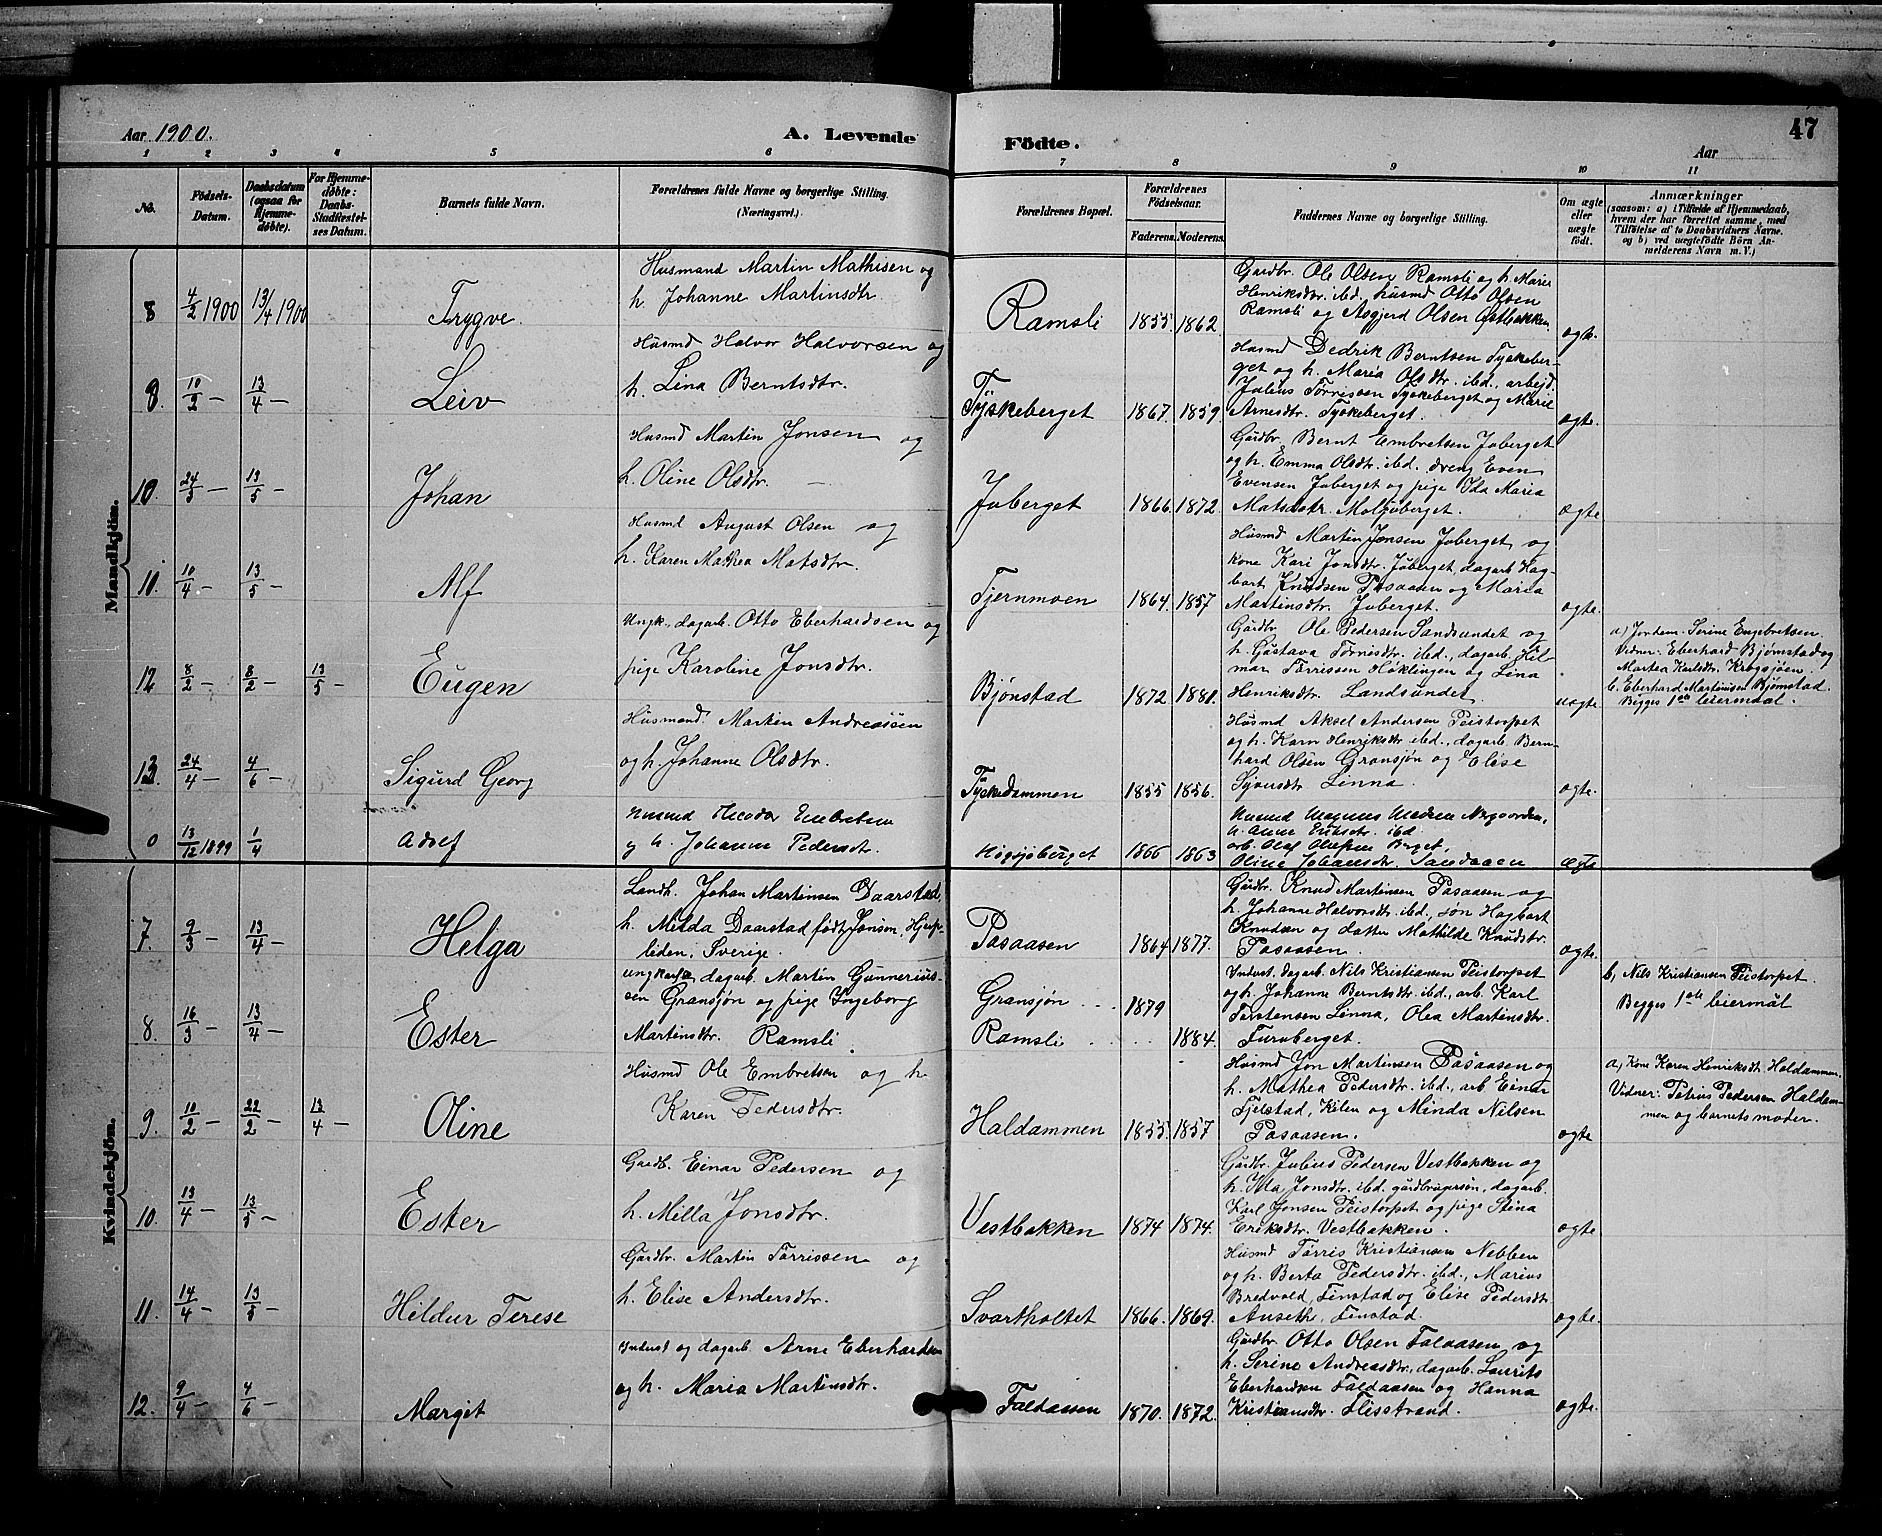 Aar 1900.
A. Levende
Födte.
Aar
47
1 2 3 4 5 6 7 8 9 10 11
No.
Födsels-Datum.
Daabsdatum (ogsaa for Hjemmedøbte).
For Hjemmedøbte: Daabs-Stadfæstelses Datum.
Barnets fulde Navn.
Forældrenes fulde Navne og borgerlige Stilling.
(Næringsvei.)
Forældrenes Bopæl.
Forældrenes Födselsaar.
Faderens. Moderens.
Faddernes Navne og borgerlige Stilling.
Om ægte eller uægte født.
Anmærkninger
(saasom: a) i Tilfælde af Hjemmedaab, hvem der har forrettet samme, med Tilføielse af to Daabsvidners Navne. og b) ved uægtefödte Börn Anmelderens Navn m. V.)
Mandkjön.
8 4/2 1900 13/4 1900
Trygve.
Husmand Martin Mathisen og
h. Johanne Martinsdtr.
Ramsli 1855. 1862.
Gårdbr. Ole Olsen Ramsli og h. Marie
Henriksdtr. ibd., husmd Otto Olsen
Ramsli og Asgjerd Olsen Østbakken
ægte.
9. 10/2 — 13/4 —
Leiv
Husmd Halvor Halvorsen og
h. Lina Berntsdtr.
Tyskeberget 1867. 1859.
Husmd Dedrik Berntsen Tyskeber-
get og h. Maria Olsdtr. ibd., arbejd.
Julius Torrissen Tyskeberget og Marie
Arnesdtr. Tyskeberget.
ægte.
10. 24/3 — 13/5 —
Johan
Husmd Martin Jonsen og
h. Oline Olsdtr. —
Juberget 1866. 1872.
Gårdbr. Bernt Embretsen Juberget
og h. Emma Olsdtr. ibd. dreng Even
Evensen Juberget og pige Ida Maria
Matsdtr. Moljuberget.
ægte
11. 10/4 — 13/5 —
Alf
Husmd August Olsen og
h. Karen Mathea Matsdtr.
Tjernmoen 1864. 1857
Husmd Martin Jonsen Juberget og
kone Kari Jonsdtr. Juberget, dagarb. Hag-
bart Knudsen Pasaasen og Maria
Martinsdtr. Juberget.
ægte.
12 8/2 — 8/2 — 13/5 —
Eugen
Ungk., dagarb. Otto Eberhardsen og
pige Karoline Jonsdtr.
Bjønstad 1872 1881.
Gårdbr. Ole Pedersen Sandsundet og
h. Gustava Torrisdtr. ibd., dagarb. Hil-
mar Torrissen Høklingen og Lina
Henriksdtr. Landsundet
uægte
a) Jordem. Serine Engebretsen.
Vidner: Eberhard Bjørnstad og
Martea Karlsdtr. Krogsjøen.
b. Eberhard Martinsen Bjørnstad.
Begges 1ste leiermaal.
13. 24/4 — 4/6 —
Sigurd Georg
Husmand Martin Andreassen
og h. Johanne Olsdtr.
Tyskedammen 1855 1856.
Husmd Aksel Andersen Peistorpet
og h. Karn Henriksdtr ibd., dagarb. Bern-
hard Olsen Gransjøn og Elise
Syversdtr Linna.
ægte.
0 13/12 1899 1/4
Adolf
Husmd Theodor Embretsen
og h. Johanne Pedersdtr.
Høgsjøberget 1866 1863
Husmd Magnus Madsen Nergaarden,
h. Anne Eriksdtr. ibd
arb. Olaf Olafsen Berget,
Oline Johansdtr. Sandaasen
ægte
Kvindekjön.
7. 9/3 — 13/4 —
Helga
Landh. Johan Martinsen Daarstad,
h. Milda Daarstad født Jonsen, Hjerp-
liden, Sverige.
Pasaasen 1864 1877.
Gårdbr. Knud Martinsen Pasaasen og
h. Johanne Halvorsdtr. ibd., søn Hagbart
Knudsen og datter Mathilde Knudsdtr.
Pasaasen.
ægte.
8. 16/3 — 13/4 —
Ester
ungkarl, dagarb. Martin Gunnerius-
sen Gransjøn og pige Ingeborg
Martinsdtr. Ramsli.
Gransjøn 1879
Ramsli 1884.
Inderst, dagarb. Nils Kristiansen Peistorpet
og h. Johanne Berntsdtr. ibd., arb. Karl
Torstensen Linna, Olea Martinsdtr.
Furuberget.
b, Nils Kristiansen Peistorpet.
Begges 1ste leiermål
9. 10/2 — 22/2 — 13/4 —
Oline
Husmd Ole Embretsen og h.
Karen Pedersdtr.
Haldammen 1855. 1857
Husmd Jon Martinsen Pasaasen og
h. Mathea Pedersdtr. ibd., arb Einar
Fjelstad, Kilen og Minda Nilsen
Pasaasen.
ægte
a, Kone Karen Henriksdtr. Haldammen.
Vidner: Petrus Pedersen Haldam-
men og barnets moder.
10. 13/4 — 13/5 —
Ester
Gårdb. Einar Pedersen og
h. Milla Jonsdtr.
Vestbakken 1874 1874.
Gårdbr. Julius Pedersen Vestbakken og
h. Ida Jonsdtr. ibd. gårdbrugersøn, dagarb.
Karl Jonsen Peistorpet og pige Stina
Eriksdtr. Vestbakken.
ægte
11. 14/4 — 13/5 —
Hildur Terese
Gårdbr. Martin Torrissen og
h. Elise Andersdtr.
Svartholtet 1866. 1869.
Husmd Torris Kristiansen Nebben
og h. Berta Pedersdtr. ibd., Marius
Bredvold, Finstad og Elise Pedersdtr.
Anseth, Finstad.
ægte.
12. 9/4 — 4/6 —
Margit
Inderst og dagarb. Arne Eberhardsen
og h. Maria Martinsdtr.
Faldaasen 1870. 1872.
Gårdbr Otto Olsen Faldaasen og
h. Serine Andreasdtr., dagarb. Laurits
Eberhardsen Faldaasen og Hanna
Kristiansdtr. Flisstrand.
ægte.